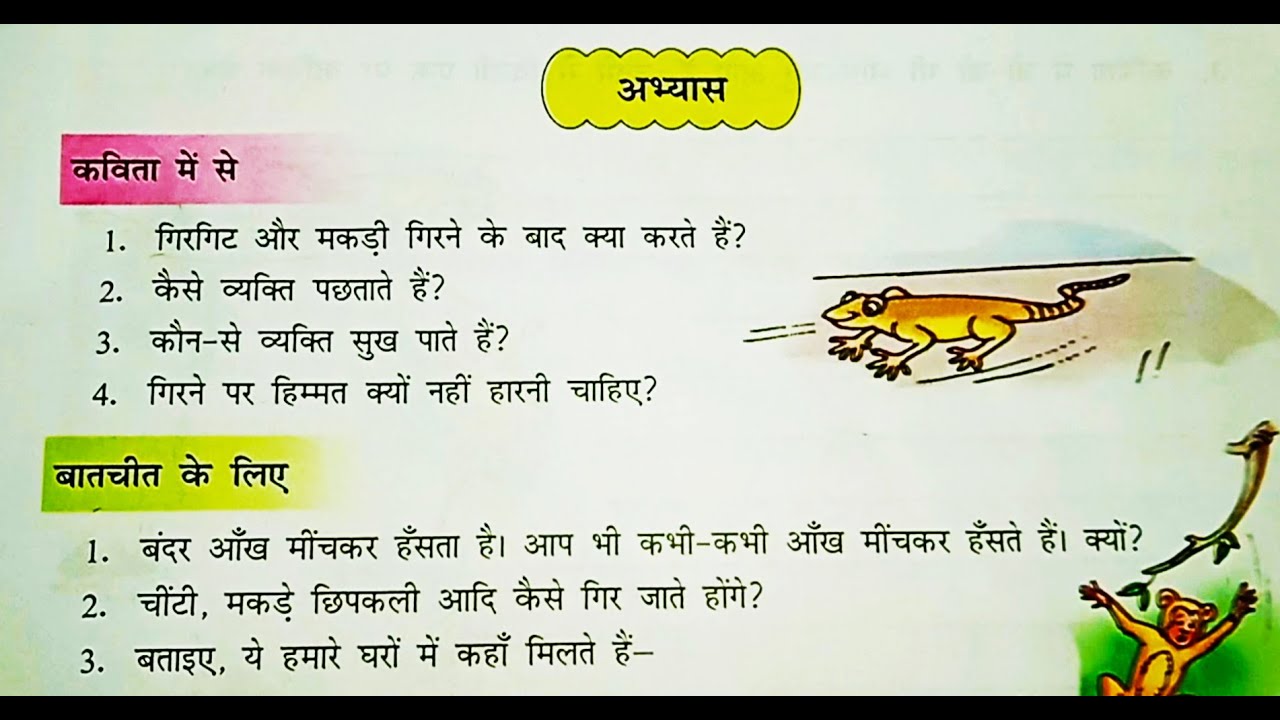 अभ्यास
कविता में से
1. गिरगिट और मकड़ी गिरने के बाद क्या करते हैं?
2. कैसे व्यक्ति पछताते हैं?
3. कौन-से व्यक्ति सुख पाते हैं?
4. गिरने पर हिम्मत क्यों नहीं हारनी चाहिए?
बातचीत के लिए
1. बंदर आँख मींचकर हँसता है। आप भी कभी-कभी आँख मींचकर हँसते हैं। क्यों?
2. चींटी, मकड़े छिपकली आदि कैसे गिर जाते होंगे?
3. बताइए, ये हमारे घरों में कहाँ मिलते हैं–